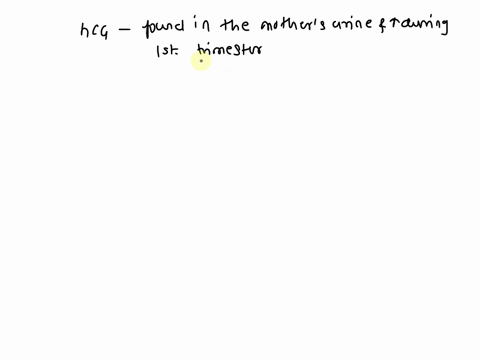 hCG – found in the mother's urine & ↑ during
1st. trimester